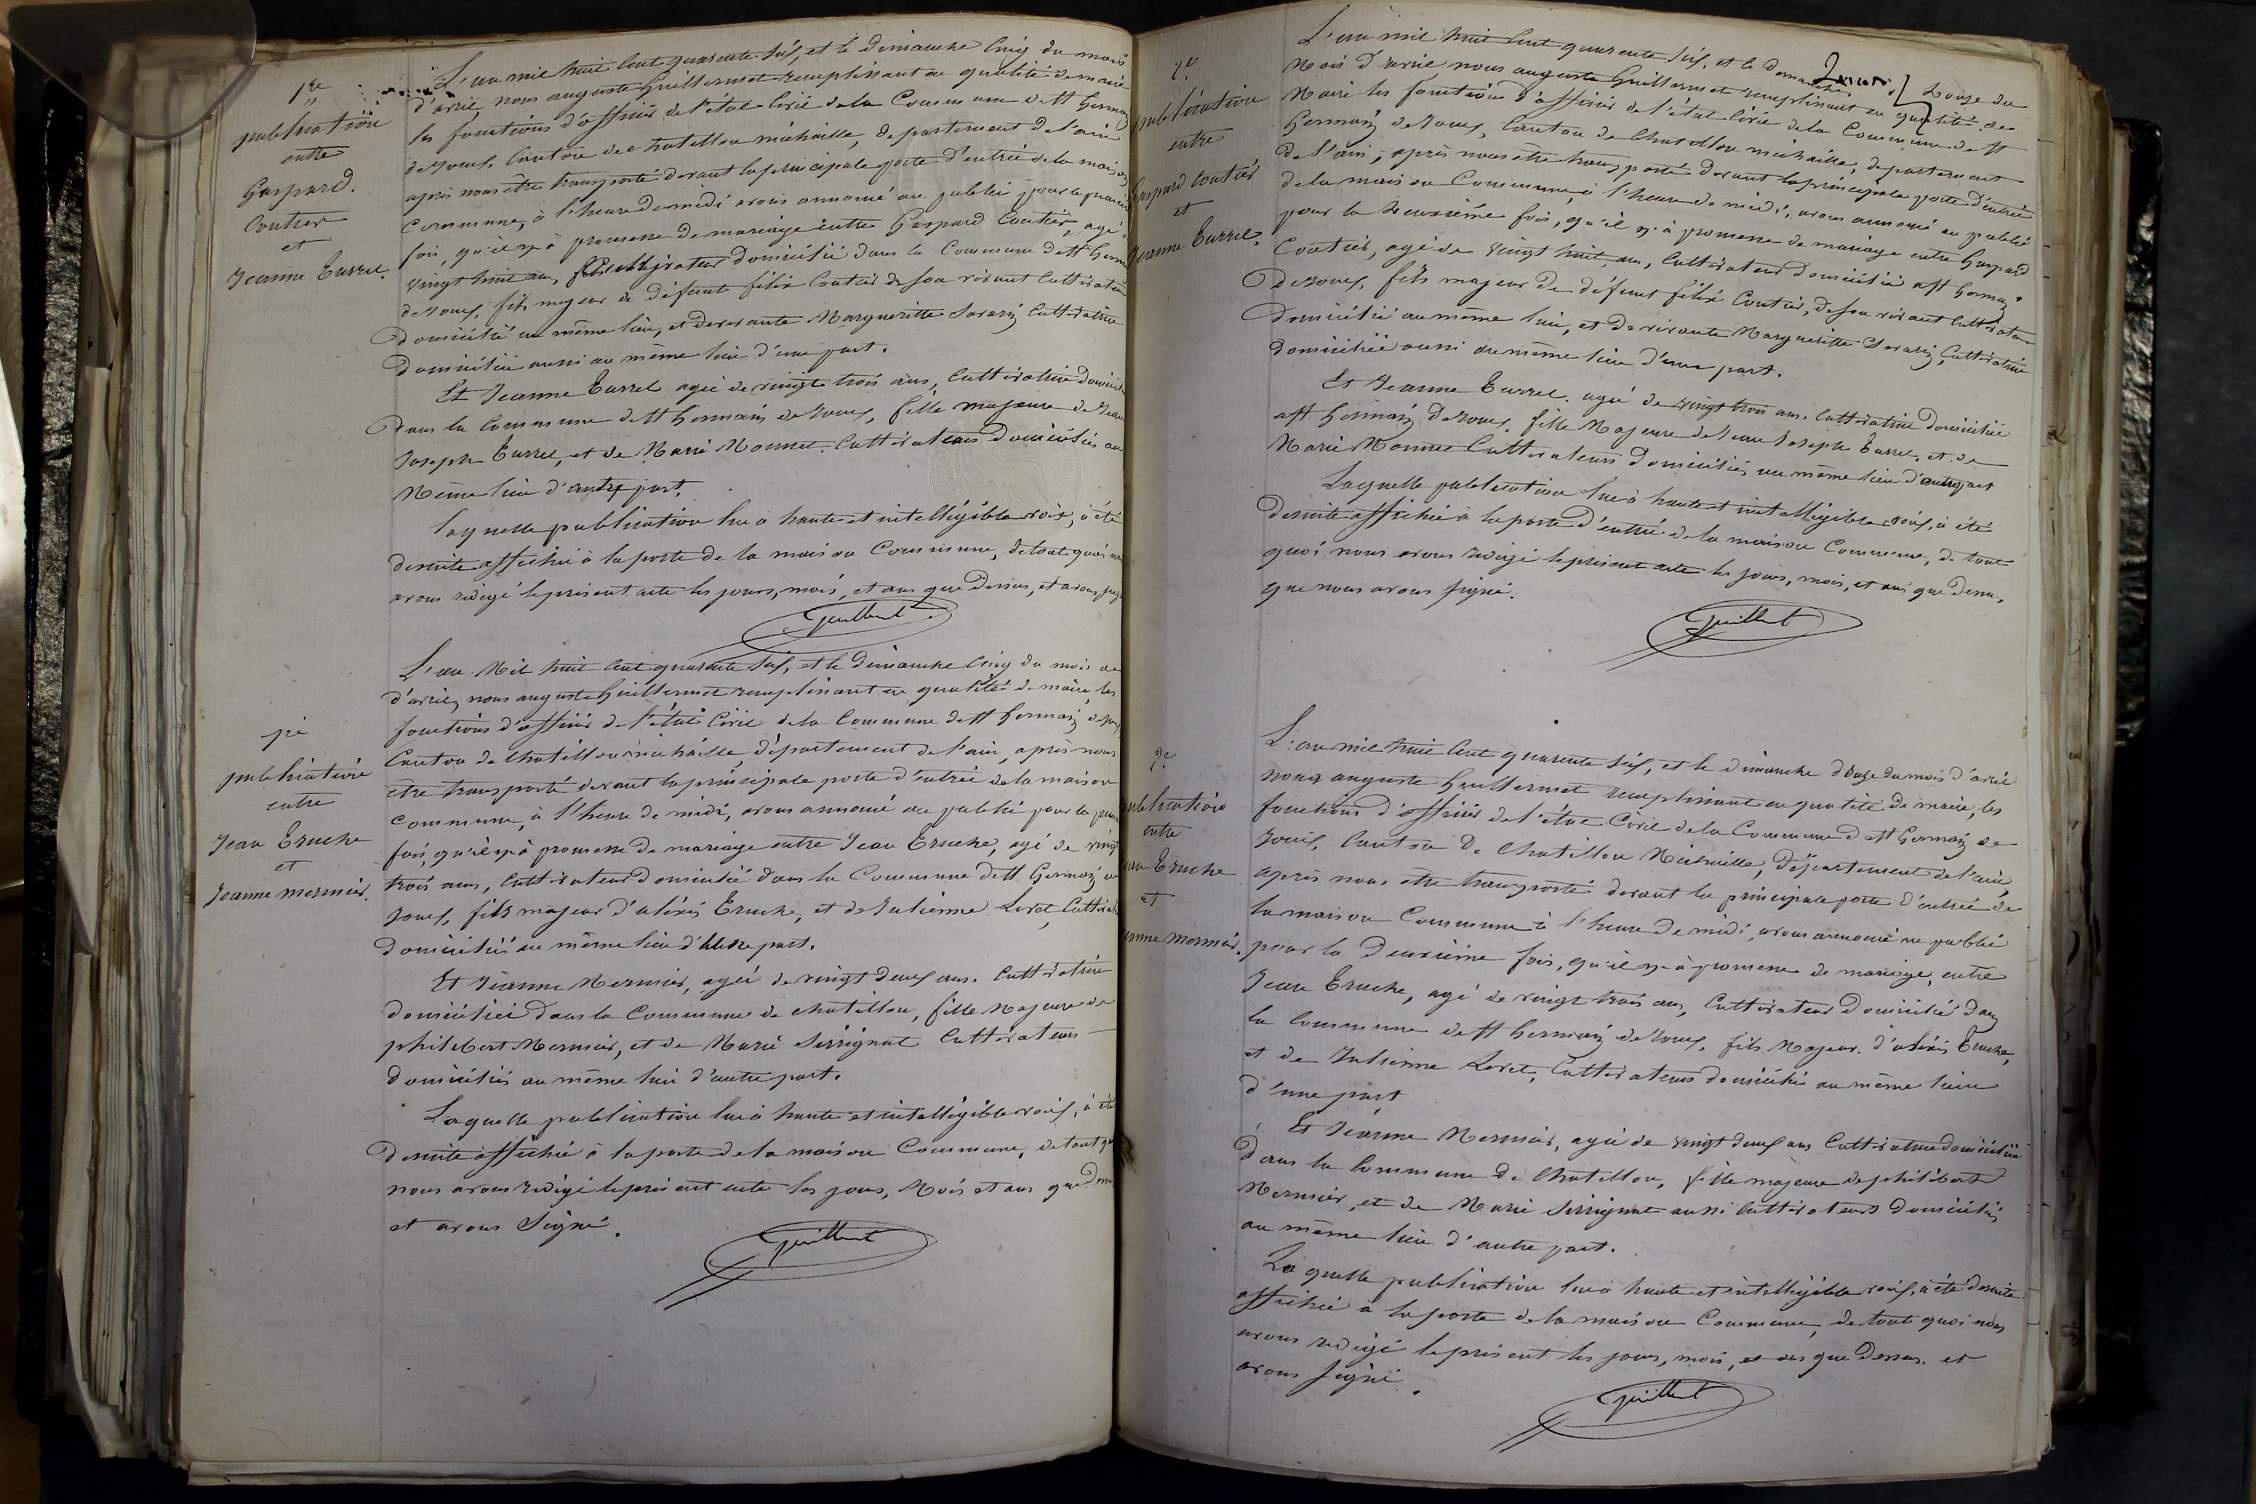 1re
publication
entre
Gaspard
Coutier
et
Jeanne Turrel.
L'an mil huit cent quarante six, et le dimanche cinq du mois
d'avril, nous auguste Guillermet remplissant en qualité de maire
les fonctions d'officier de l'état Civil de la Commune de St Germain
de Joux, Canton de Chatillon michaille, departement de l'ain
après nous être transporté devant la principale porte d'entrée de la maison
Commune, à l'heure de midi avons annoncé au public pour la premier
fois, qu'il y à promesse de mariage entre Gaspard Coutier, agé
vingt huit ans, Cultivateur domicilié dans la Commune de St Germ
de Joux, fils majeur de défunt félix Coutier de son vivant Cultivateur
domicilié au même lieu, et de vivante Margueritte Savarin Cultivatrice
domiciliée aussi au même lieu d'une part.
Et Jeanne Turrel agée de vingt trois ans, Cultivatrice domicili
dans la Commune de St Germain de Joux, fille majeure de Jean
Joseph Turrel, et de Marie Monnet Cultivateurs domiciliés au
Même lieu d'autre part.
laquelle publication lue à haute et intelligible voix, à été
desuite affichée à la porte de la maison Commune, de tout quoi nous
avons rédigé le présent acte les jours, mois, et ans que dessus, et avons signé
Guillermet
pre
publication
entre
Jean Eruche
et
Jeanne Mermier.
L'an Mil huit cent quarante six, et le dimanche cinq du mois de
d'avril, nous auguste Guillermet remplissant en qualité de maire, les
fonctions d'officier de l'état Civil de la Commune de St Germain de Joux
Canton de Chatillon michaille, département de l'ain, après nous
être transporté devant la principale porte d'entrée de la maison
Commune, à l'heure de midi, avons annoncé au public pour la premier
fois, qu'il y à promesse de mariage entre Jean Eruche, agé de vingt
trois ans, Cultivateur domicilié dans la Commune de St Germain de
Joux, fils majeur d'aléxis Eruche, et de Julienne Levet, Cultivat
domiciliés au même lieu d'une part.
Et Jeanne Mermier, agée de vingt deux ans. Cultivatrice
domiciliée dans la Commune de chatillon, fille Majeure de
philibert Mermier, et de Marie Sirrignat Cultivateurs
domiciliés au même lieu d'autre part.
Laquelle publication lue à haute et intelligible voix, à été
desuite affichée à la porte de la maison Commune, de tout quoi
nous avons rédigé le présent acte les jours, Mois et ans que dessus
et avons Signé.
Guillermet
2e
publication
entre
Gaspard Coutier
et
Jeanne Turrel.
L'an mil huit cent quarante six, et le dimanche douze du
Mois d'avril nous auguste Guillermet remplissant en qualité de
Maire les fonctions d'officier de l'état Civil de la Commune de St
Germain de Joux, Canton de Chatillon michaille, departement
de l'ain, après nous être transporté devant la principale porte d'entrée
de la maison Commune, à l'heure de midi, avons annoncé au public
pour la deuxième fois, qu'il y à promesse de mariage entre Gaspard
Coutier, agé de vingt huit ans, Cultivateur domicilié à St Germain
de Joux, fils majeur de défunt félix Coutier, de son vivant Cultivateur
domicilié au même lieu, et de vivante Margueritte Savarin, Cultivatrice
domiciliée aussi au même lieu d'une part.
Et Jeanne Turrel. agée de vingt trois ans. Cultivatrice domiciliée
à St Germain de Joux, fille Majeure de Jean Joseph Turrel, et de
Marie Monnet Cultivateurs domiciliés au même lieu d'autre part
Laquelle publication lue à haute et intelligible voix, à été
desuite affichée à la porte d'entrée de la maison Commune, de tout
quoi nous avons rédigé le présent acte les jours, mois, et ans que dessus,
que nous avons signé.
Guillermet
2e
publication
entre
Jean Eruche
et
Jeanne Mermier.
L'an mil huit cent quarante six, et le dimanche douze du mois d'avril
nous auguste Guillermet remplissant en qualité de maire, les
fonctions d'officier de l'état Civil de la Commune de St Germain de
Joux, Canton de Chatillon Michaille, département de l'ain,
après nous être transporté devant la principale porte d'entrée de
la maison Commune à l'heure de midi, avons annoncé au public
pour la deuxième fois, qu'il y à promesse de mariage, entre
Jean Eruche, agé de vingt trois ans, Cultivateur domicilié dans
la Commune de St Germain de Joux, fils Majeur. d'aléxis Eruche,
et de Julienne Levet, Cultivateurs domiciliés au même lieu
d'une part
Et Jeanne Mermier, agée de vingt deux ans Cultivatrice domiciliée
dans la Commune de Chatillon, fille majeure de philibert
Mermier, et de Marie Sirrignat aussi Cultivateurs domiciliés
au même lieu d'autre part.
Laquelle publication lue à haute et intelligible voix, à été desuite
affichée à la porte de la maison Commune, de tout quoi nous
avons rédigé le présent les jours, mois, et ans que dessus. et
avons signé.
Guillermet